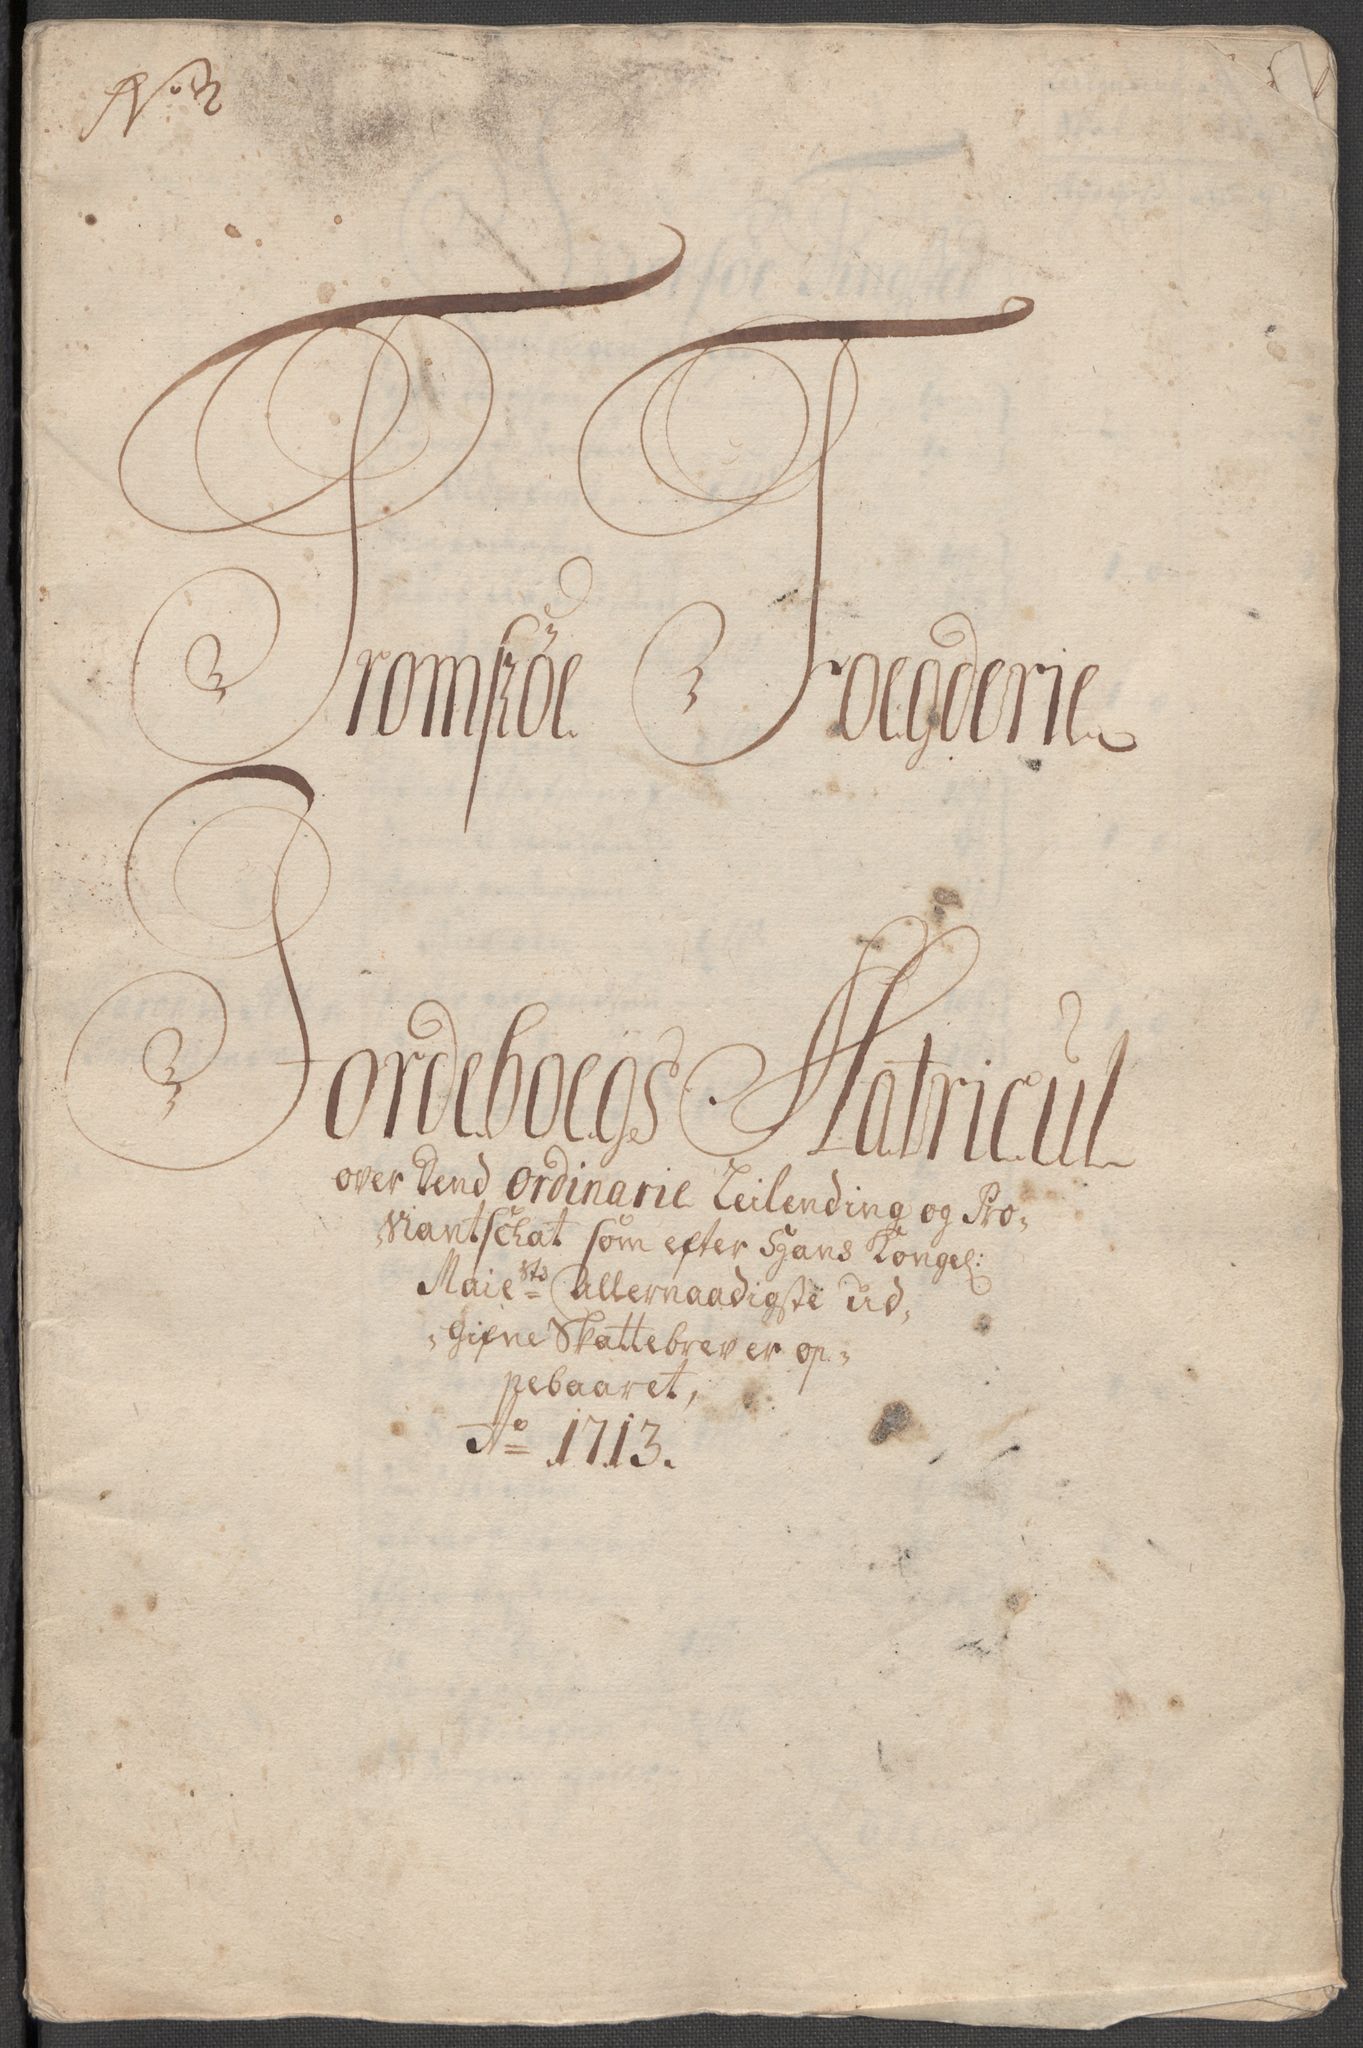 No 3
Tromsöe Foegderie
Jordeboegs Matricul
over dend ordinarie Leilending og Pro-
viantschat som efter Hans Kongel:
Maiests allernaadigste ud-
gifne Skattebrev er op-
pebaaret,
Ao 1713.